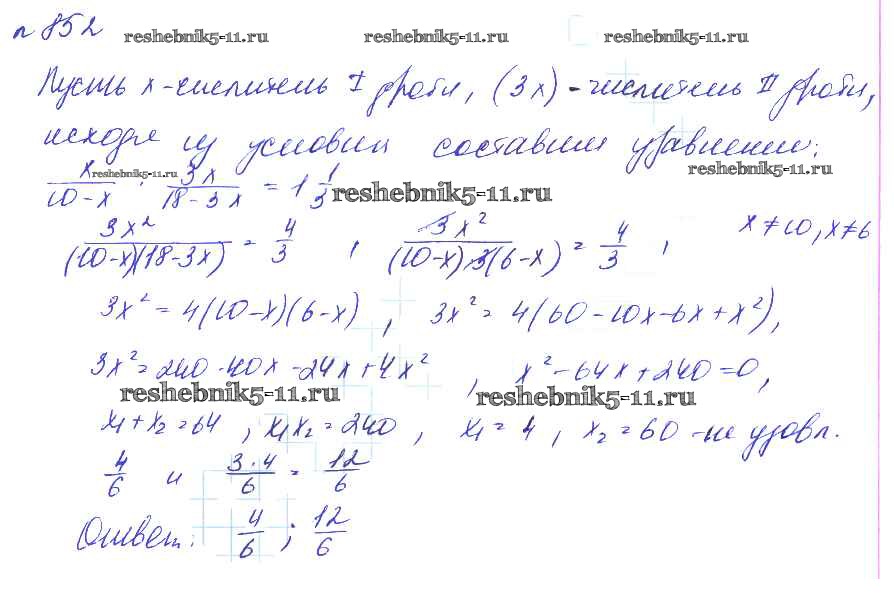 №852
reshebnik5-11.ru reshebnik5-11.ru reshebnik5-11.ru
Пусть x - числитель I дроби, (3x) - числитель II дроби,
исходя из условия составим уравнение:
reshebnik5-11.ru reshebnik5-11.ru
x/(10-x) · 3x/(18-3x) = 1 1/3 reshebnik5-11.ru
3x²/((10-x)(18-3x)) = 4/3 , 3x²/((10-x)3(6-x)) = 4/3 , x≠10, x≠6
3x² = 4(10-x)(6-x) , 3x² = 4(60-10x-6x+x²),
3x² = 240-40x-24x+4x² , x²-64x+240=0,
reshebnik5-11.ru reshebnik5-11.ru
x₁+x₂=64 , x₁x₂=240 , x₁=4 , x₂=60 - не удовл.
4/6 и 3·4/6 = 12/6
Ответ: 4/6 ; 12/6
reshebnik5-11.ru reshebnik5-11.ru reshebnik5-11.ru